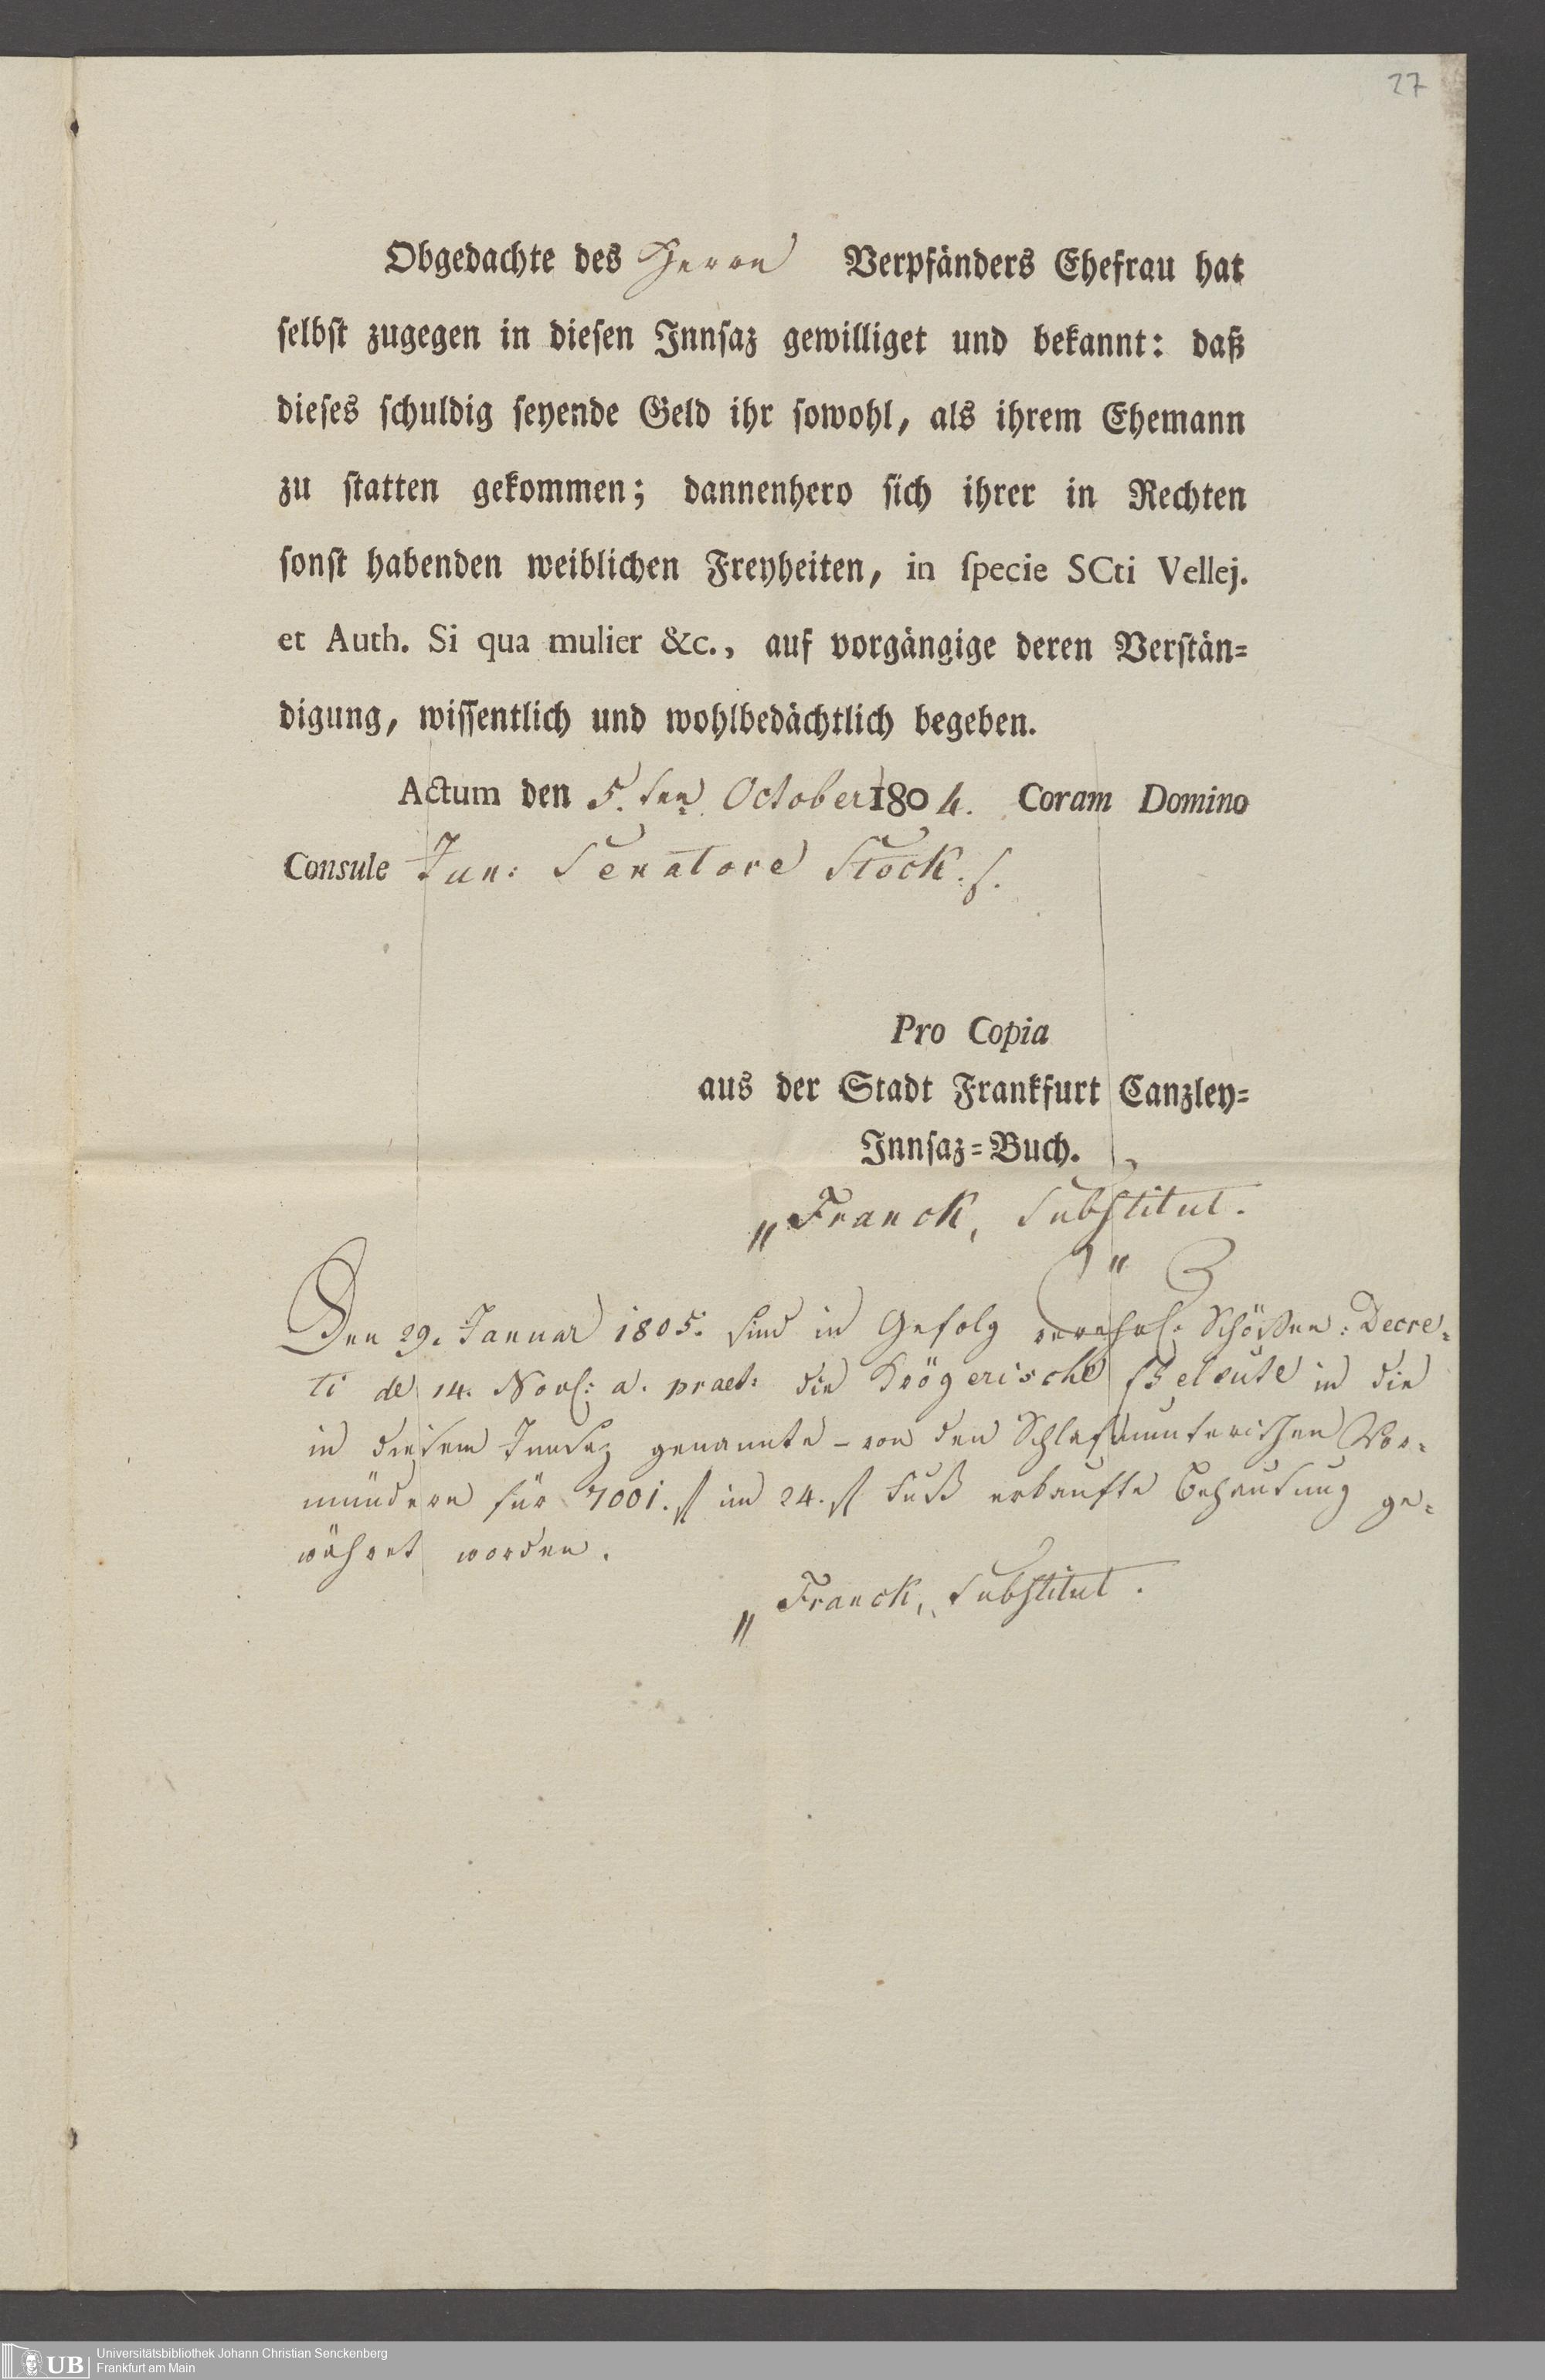 27
Obgedachte des Herrn Verpfänders Ehefrau hat
ſelbſt zugegen in dieſen Innſaz gewilliget und bekannt: daß
dieſes ſchuldig ſeyende Geld ihr ſowohl, als ihrem Ehemann
zu ſtatten gekommen; dannenhero ſich ihrer in Rechten
ſonſt habenden weiblichen Freyheiten, in ſpecie SCti Vellej.
et Auth. Si qua mulier &c., auf vorgängige deren Verſtän=
digung, wiſſentlich und wohlbedächtlich begeben.
Actum den 5.ten October 1804. Coram Domino
Consule Jun: Senatore Stock.
Pro Copia
aus der Stadt Frankfurt Canzley=
Innſaz=Buch.
„Franck, Substitut.
Den 29. Januar 1805. sind in Gefolg verehrl: Schöffen: Decre=
ti de 14. Novb: a. praet: die Krögerische Eheleute in die
in diesem Innsaz genannte – von den Vor=
mündern für 7001. f im 24. f Fuß erkaufte Behausung ge=
währet worden.
„Franck, Substitut.
UB
Universitätsbibliothek Johann Christian Senckenberg
Frankfurt am Main